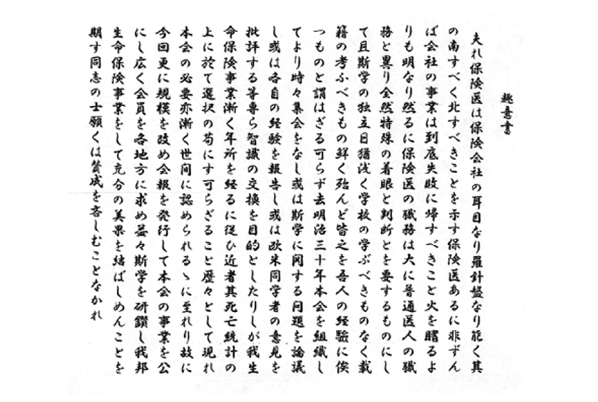 趣意書
夫れ保険医は保険会社の耳目なり羅針盤なり能く其
の南すべく北すべきことを示す保険医あるに非ずん
ば会社の事業は到底失敗に帰すべきこと火を睹るよ
りも明なり然るに保険医の職務は大に普通医人の職
務と異り全然特殊の着眼と判断とを要するものにし
て且斯学の独立日猶浅く学校の学ぶべきものなく載
籍の考ふべきもの鮮く殆んど皆之を吾人の経験に俟
つものと謂はざる可らず去明治三十年本会を組織し
てより時々集会をなし或は斯学に関する問題を論議
し或は各自の経験を報告し或は欧米同学者の意見を
批評する等専ら智識の交換を目的としたりしが我生
命保険事業漸く年所を経るに従ひ近者其死亡統計の
上に於て選択の苟にす可らざること歴々として現れ
本会の必要亦漸く世間に認められるゝに至れり故に
今回更に規模を改め会報を発行して本会の事業を公
にし広く会員を各地方に求め益々斯学を研鑽し我邦
生命保険事業をして充分の美果を結ばしめんことを
期す同志の士願くは賛成を吝しむことなかれ